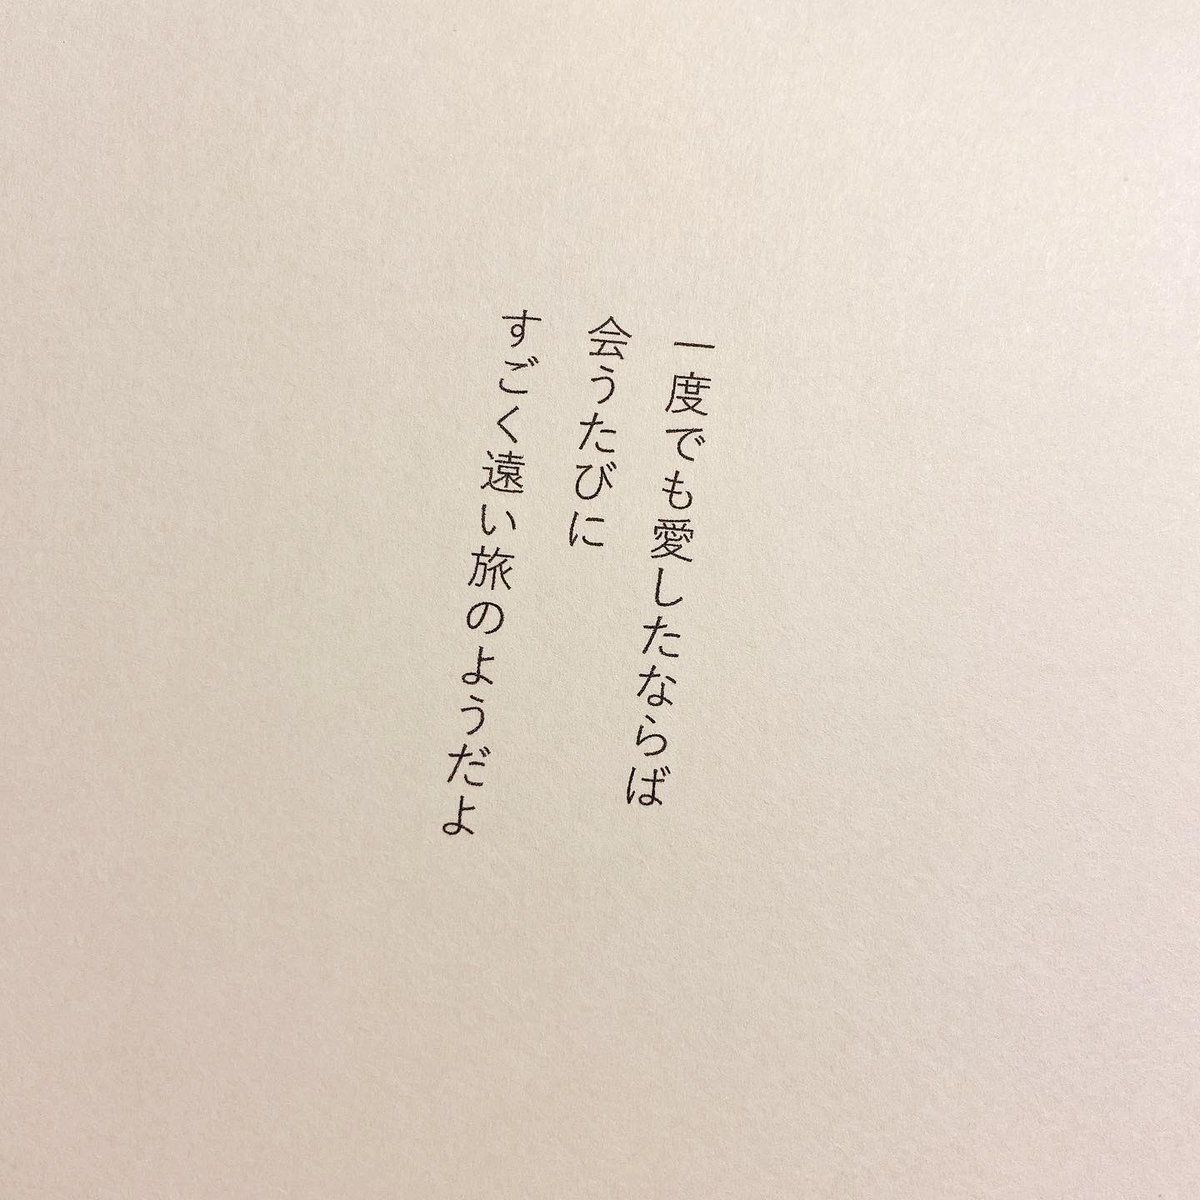 一度でも愛したならば
会うたびに
すごく遠い旅のようだよ